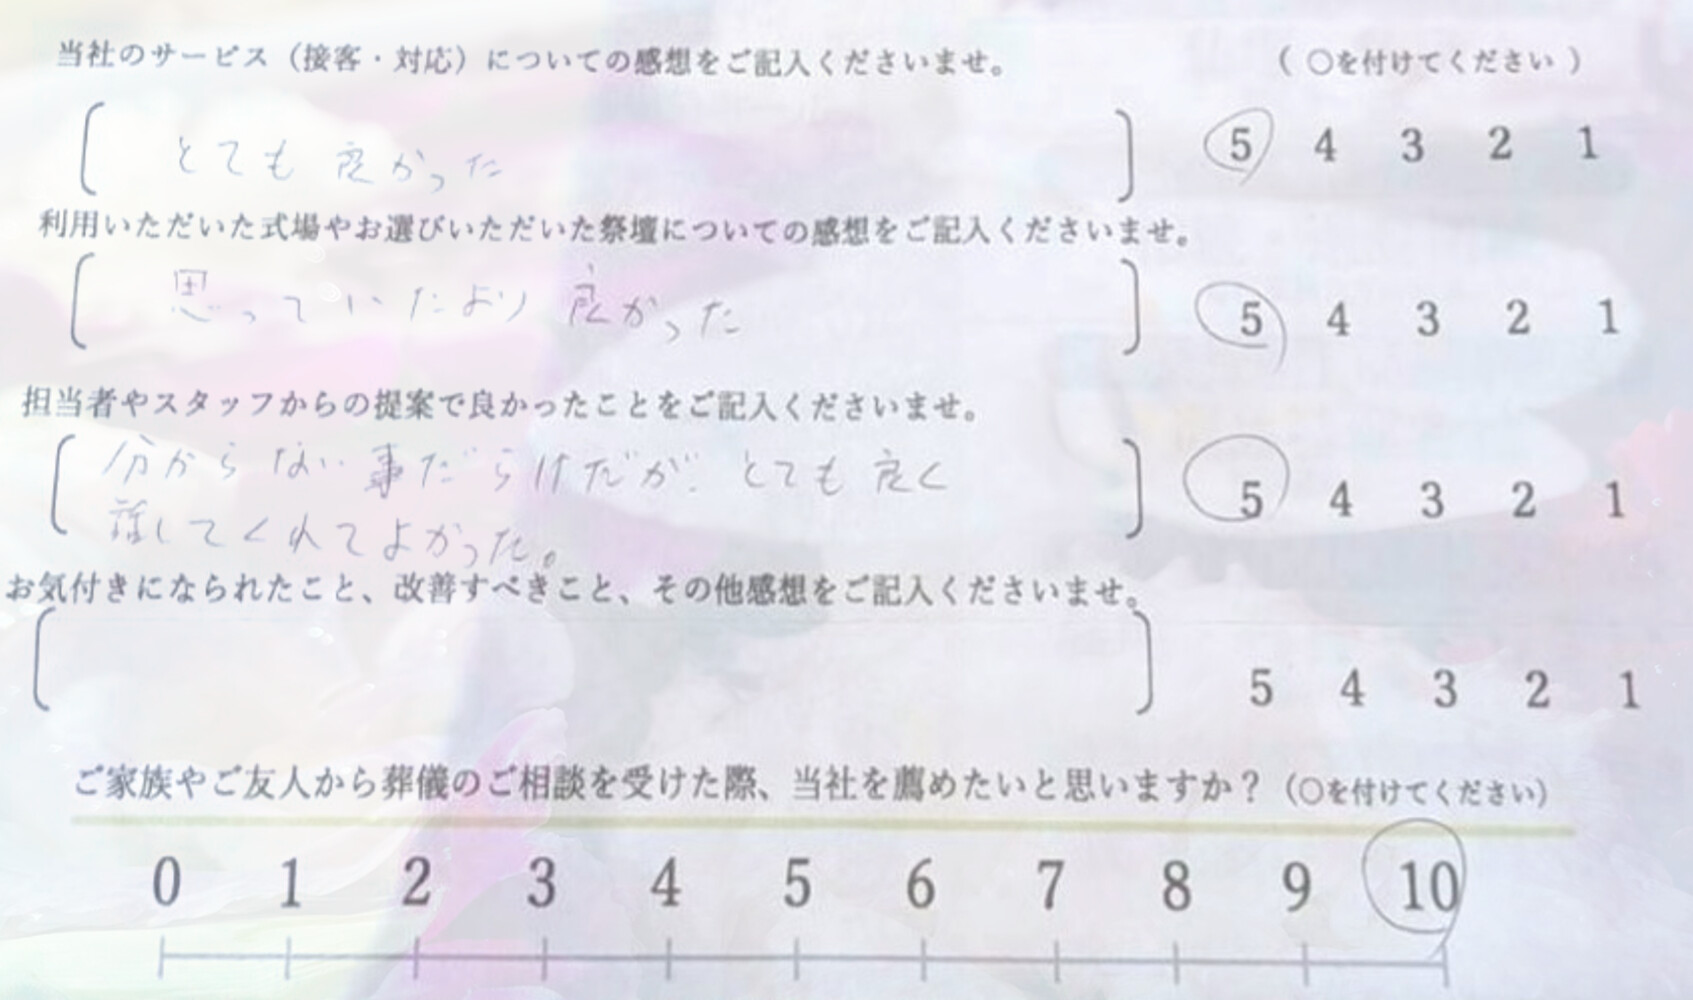 当社のサービス（接客・対応）についての感想をご記入くださいませ。 （ ○を付けてください ）
とても良かった 5 4 3 2 1
利用いただいた式場やお選びいただいた祭壇についての感想をご記入くださいませ。
思っていたより良かった 5 4 3 2 1
担当者やスタッフからの提案で良かったことをご記入くださいませ。
分からない事だらけだが、とても良く 5 4 3 2 1
話してくれてよかった。
お気付きになられたこと、改善すべきこと、その他感想をご記入くださいませ。
5 4 3 2 1
ご家族やご友人から葬儀のご相談を受けた際、当社を薦めたいと思いますか？（○を付けてください）
0 1 2 3 4 5 6 7 8 9 10